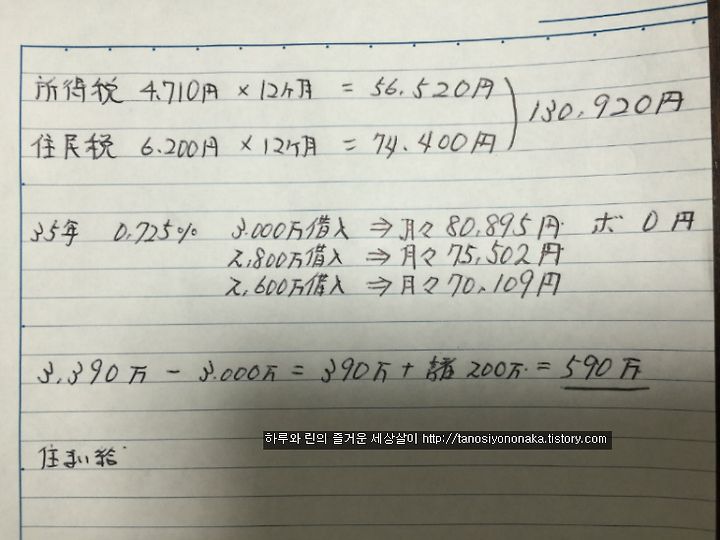 所得税 4.710円 × 12ヶ月 = 56.520円
130.920円
住民税 6.200円 × 12ヶ月 = 74.400円
35年 0.725% 3.000万借入 ⇒ 月々 80.895円 ボ 0円
2,800万借入 ⇒ 月々 75,502円
2,600万借入 ⇒ 月々 70.109円
3.390万 - 3.000万 = 390万 + 諸 200万 = 590万
하루와 린의 즐거운 세상살이 http://tanosiyononaka.tistory.com
住まい給